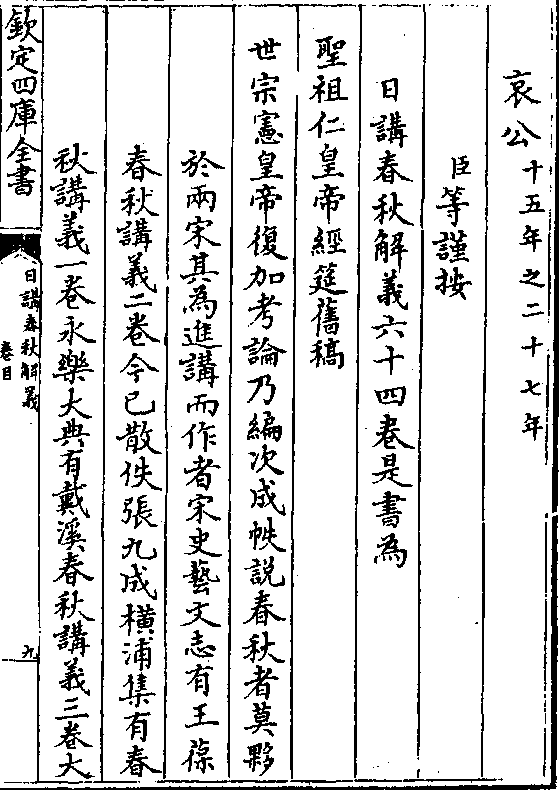 哀公十五年之二十七年
臣等謹按
日講春秋解義六十四卷是書為
聖祖仁皇帝經筵舊稿
世宗憲皇帝復加考論乃編次成帙説春秋者莫夥
於兩宋其為進講而作者宋史藝文志有王葆
春秋講義二卷今已散佚張九成横浦集有春
秋講義一卷永樂大典有戴溪春秋講義三卷大
欽定四庫全書
日講春秋解義
卷目
九